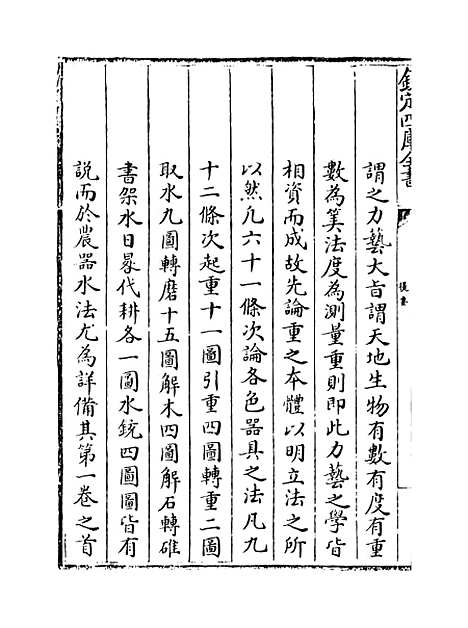 欽定四庫全書
提要
謂之力藝大旨謂天地生物有數有度有重
數為筭法度為測量重則即此力藝之學皆
相資而成故先論重之本體以明立法之所
以然凡六十一條次論各色器具之法凡九
十二條次起重十一圖引重四圖轉重二圖
取水九圖轉磨十五圖解木四圖解石轉碓
書架水日晷代耕各一圖水銃四圖圖皆有
說而於農器水法尤為詳備其第一卷之首